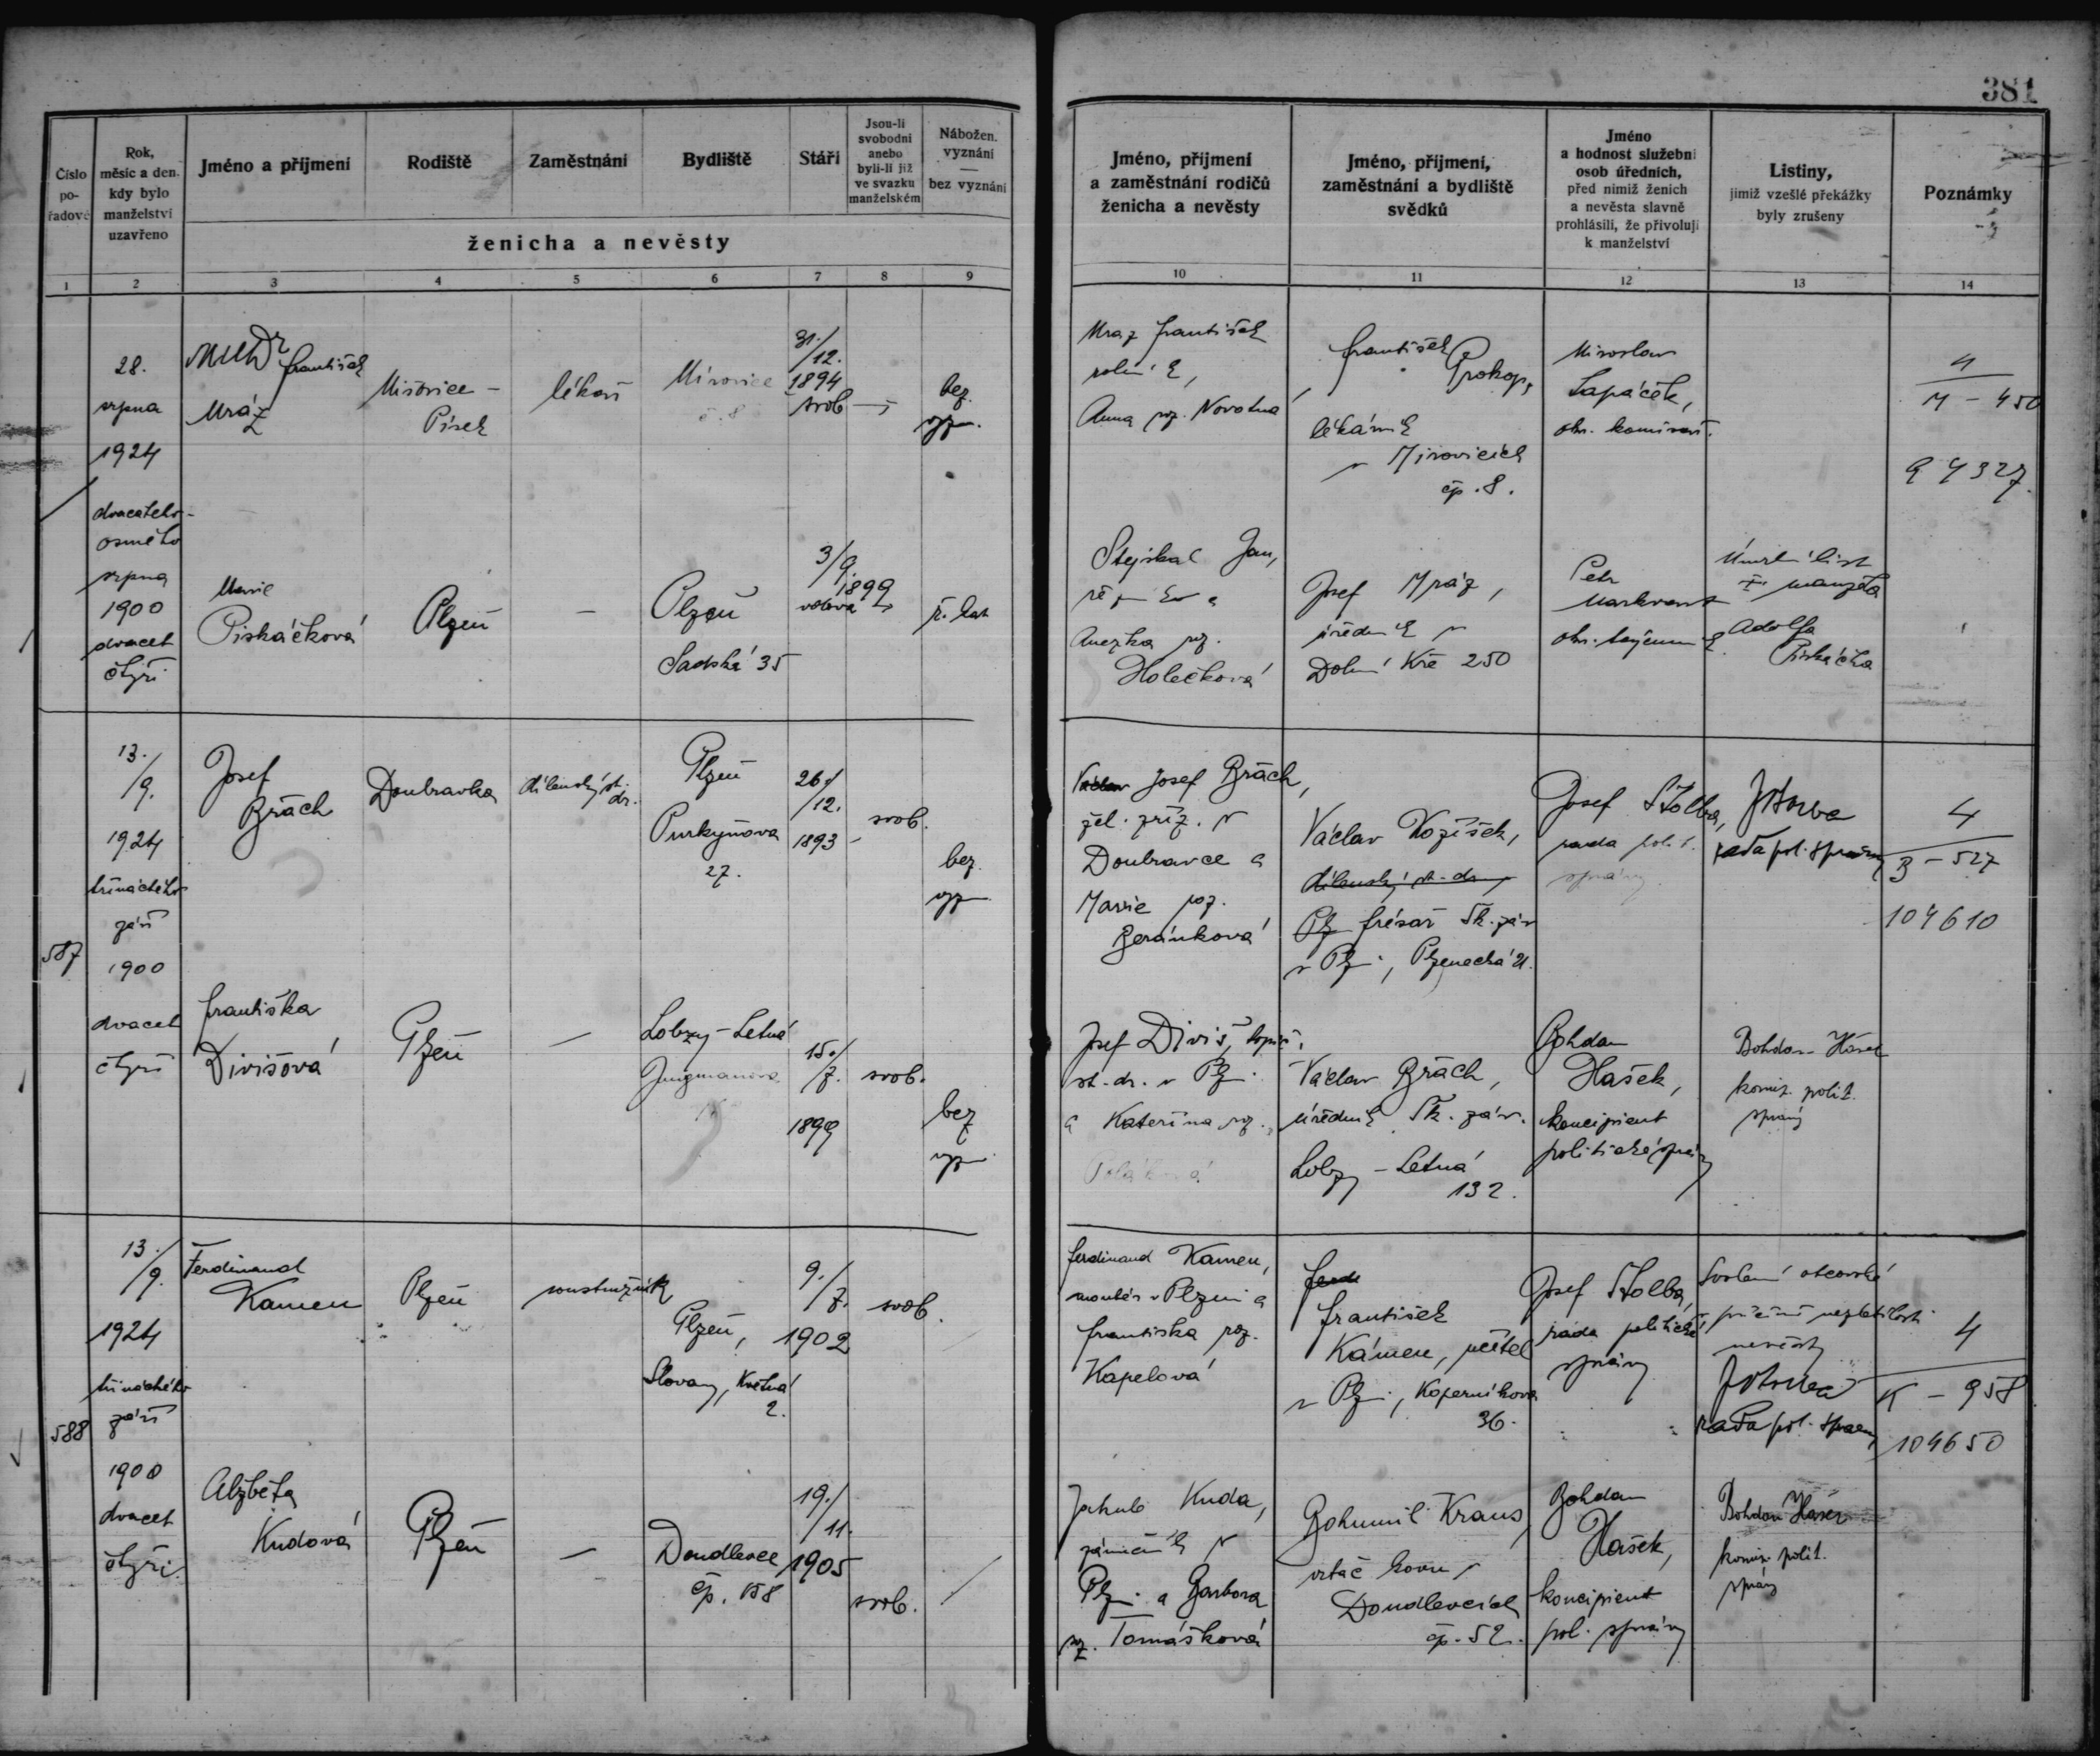 381
Číslo pořadové
Rok, měsíc a den, kdy bylo manželství uzavřeno
Jméno a příjmení
Rodiště
Zaměstnání
Bydliště
Stáří
Jsou-li svobodni anebo byli-li již ve svazku manželském
Nábožen. vyznání — bez vyznání
ženicha a nevěsty
Jméno, příjmení a zaměstnání rodičů ženicha a nevěsty
Jméno, příjmení, zaměstnání a bydliště svědků
Jméno a hodnost služební osob úředních, před nimiž ženich a nevěsta slavně prohlásili, že přivolují k manželství
Listiny, jimiž vzešlé překážky byly zrušeny
Poznámky
1 2 3 4 5 6 7 8 9 10 11 12 13 14
28.
srpna
1924
dvacátého
osmého
srpna
1900
dvacet
čtyři
MUDr František
Mráz
Mirovice -
Písek
lékař
Mirovice
č. 8
31./
12.
1894
svob
bez
vyzn.
Mráz František
rolník,
Anna roz. Novotná
František
Prokop,
lékárník
v Mirovicích
čp. 8.
Miroslav
Lapáček,
obv. komisař.
4
M - 450
97327.
Marie
Piskáčková
Plzeň
—
Plzeň
Sadská 35
3/9.
1899
vdova
ř. kat
Stejskal Jan,
Anežka roz.
Holečková
Josef Mráz,
úředník v
Dolní Krč 250
Petr
Markvart
obv. tajemník
Úmrtní list
manžela
Adolfa
Piskáčka
587
13.
/9.
1924
třináctého
září
1900
dvacet
čtyři
Josef
Brach
Doubravka
dílenský st.
dr.
Plzeň
Purkyňova
27.
26./
/12.
1893
svob.
bez
vyzn
Václav Josef Brach,
žel. zříz. v
Doubravce a
Marie roz.
Beránková
Václav Kozíšek,
dílenský st. dr.
Plz frésař Šk. záv
v Plz., Plzenecká 21.
Josef Stolba,
rada polit.
správy
JStolba
rada pol. správy
4
B - 527
104610
Františka
Divišová
Plzeň
—
Lobzy - Letná
Jungmanova
15./
/7.
1899
svob.
bez
vyzn
Josef Diviš, topič
st. dr. v Plz.
a Kateřina roz.
Václav Brach,
úředník Šk. záv.
Lobzy - Letná
132.
Bohdan
Hašek,
koncipient
politické správy
Bohdan Hašek
komis. polit.
správy
588
13.
/9.
1924
třináctého
září
1900
dvacet
čtyři.
Ferdinand
Kamen
Plzeň
soustružník
Plzeň,
Slovany, Květná
2.
9./
/7.
1902
svob.
Ferdinand Kamen,
montér v Plzni a
Františka roz.
Kapelová
Ferd
František
Kámen, učitel
v Plz., Koperníkova
36.
Josef Stolba,
rada politické
správy
Svolení otcovské
příčině nezletilosti
nevěsty
JStolba
rada pol. správy
4
K - 958
104650
Alžběta
Kudová
Plzeň
—
Doudlevce
čp. 158
19./
/11.
1905
svob.
Jakub Kuda,
zámečník v
Plz. a Barbora
roz. Tomášková
Bohumil Kraus,
vrtač kovu v
Doudlevcích
čp. 52.
Bohdan
Hašek,
koncipient
pol. správy
Bohdan Hašek
komis. polit.
správy